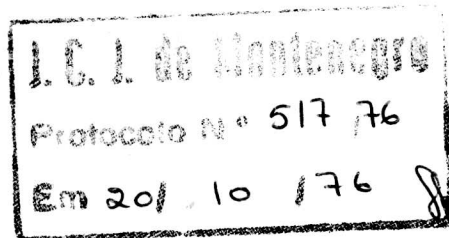 J. C. J. de Montenegro
Protocolo Nº 517/76
Em 20/ 10 /76